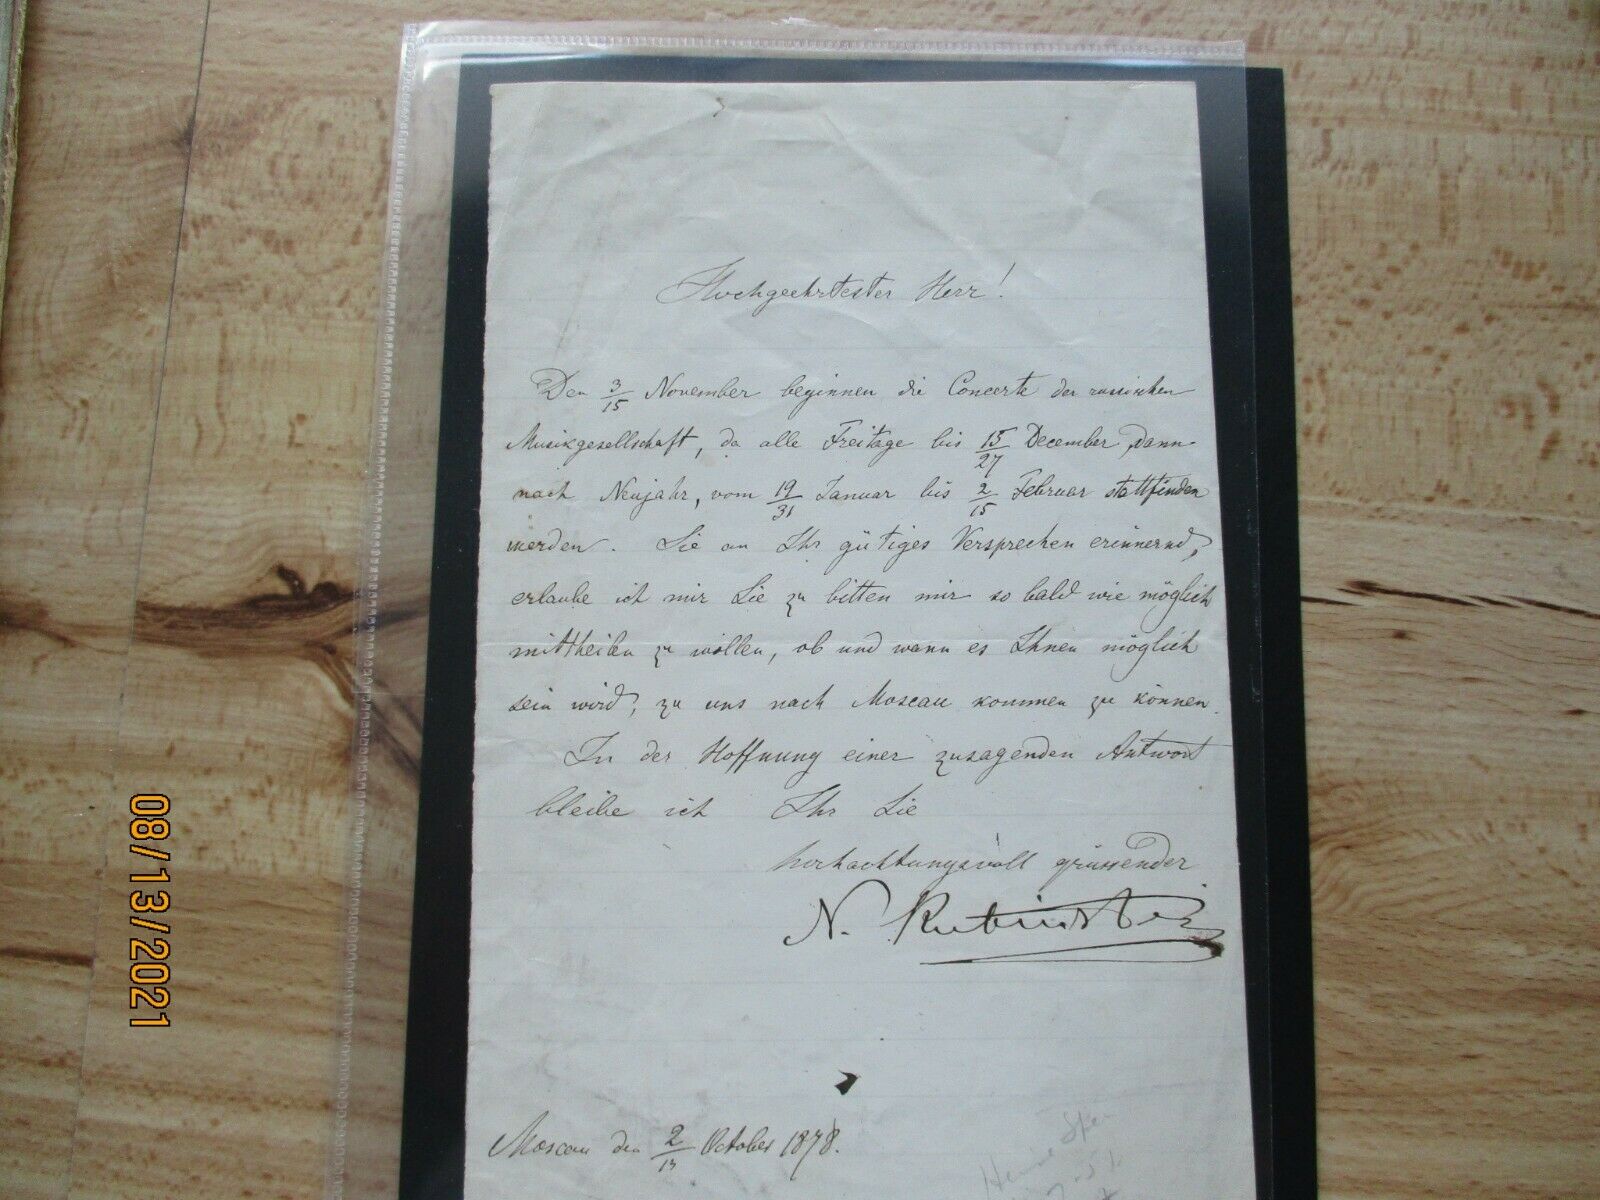 Hochgeehrtester Herr!
Den 3/15 November beginnen die Concerte der russischen
Musikgesellschaft, da alle Freitage bis 15/27 December, dann
nach Neujahr, vom 19/31 Januar bis 2/15 Februar stattfinden
werden. Sie an Ihr gütiges Versprechen erinnernd,
erlaube ich mir Sie zu bitten mir so bald wie möglich
mittheilen zu wollen, ob und wann es Ihnen möglich
sein wird, zu uns nach Moscau kommen zu können.
In der Hoffnung einer zusagenden Antwort
bleibe ich Ihr Sie
hochachtungsvoll grüssender
N. Rubinstein
Moscau den 2/14 October 1878.
08/13/2021